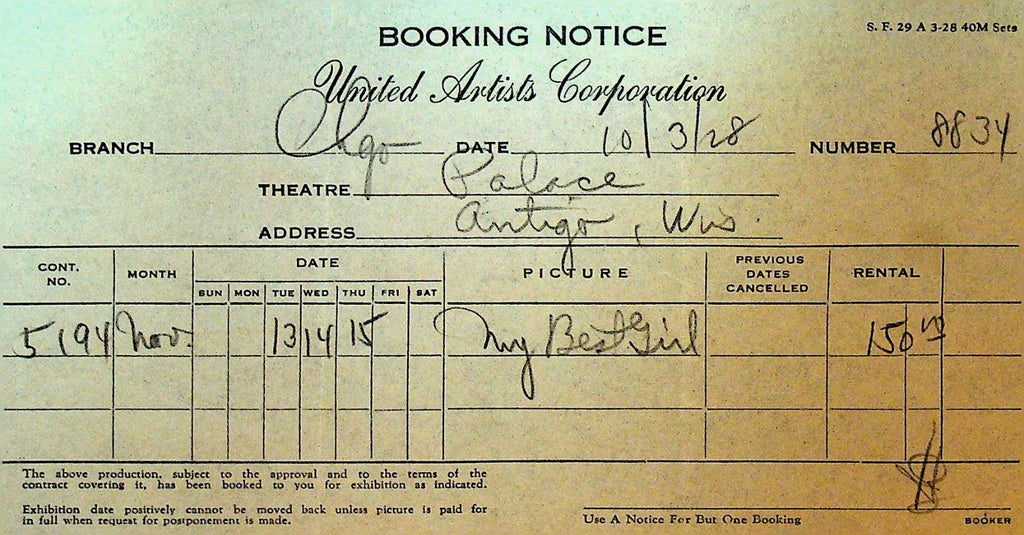 BOOKING NOTICE
S. F. 29 A 3-28 40M Sets
United Artists Corporation
BRANCH Chgo DATE 10/3/28 NUMBER 8834
THEATRE Palace
ADDRESS Antigo, Wis.
CONT. NO. MONTH DATE PICTURE PREVIOUS DATES CANCELLED RENTAL
SUN MON TUE WED THU FRI SAT
5194 Nov. 13 14 15 My Best Girl 150 00
The above production, subject to the approval and to the terms of the
contract covering it, has been booked to you for exhibition as indicated.
Exhibition date positively cannot be moved back unless picture is paid for
in full when request for postponement is made.
Use A Notice For But One Booking
BOOKER